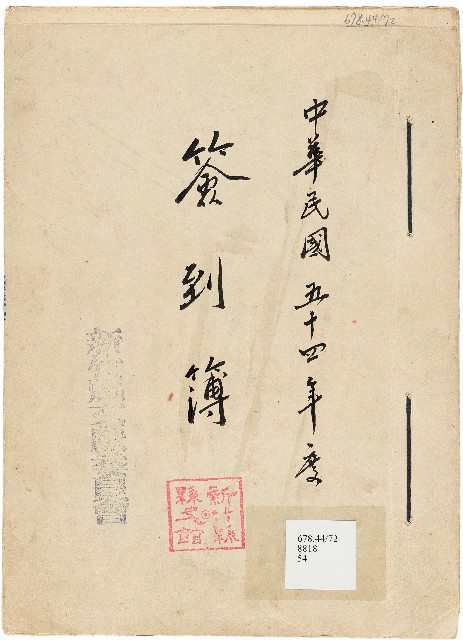 678.44/72
中華民國五十四年度
簽到簿
新竹縣文獻委員會
新竹縣
縣史館
678.44/72
8818
54